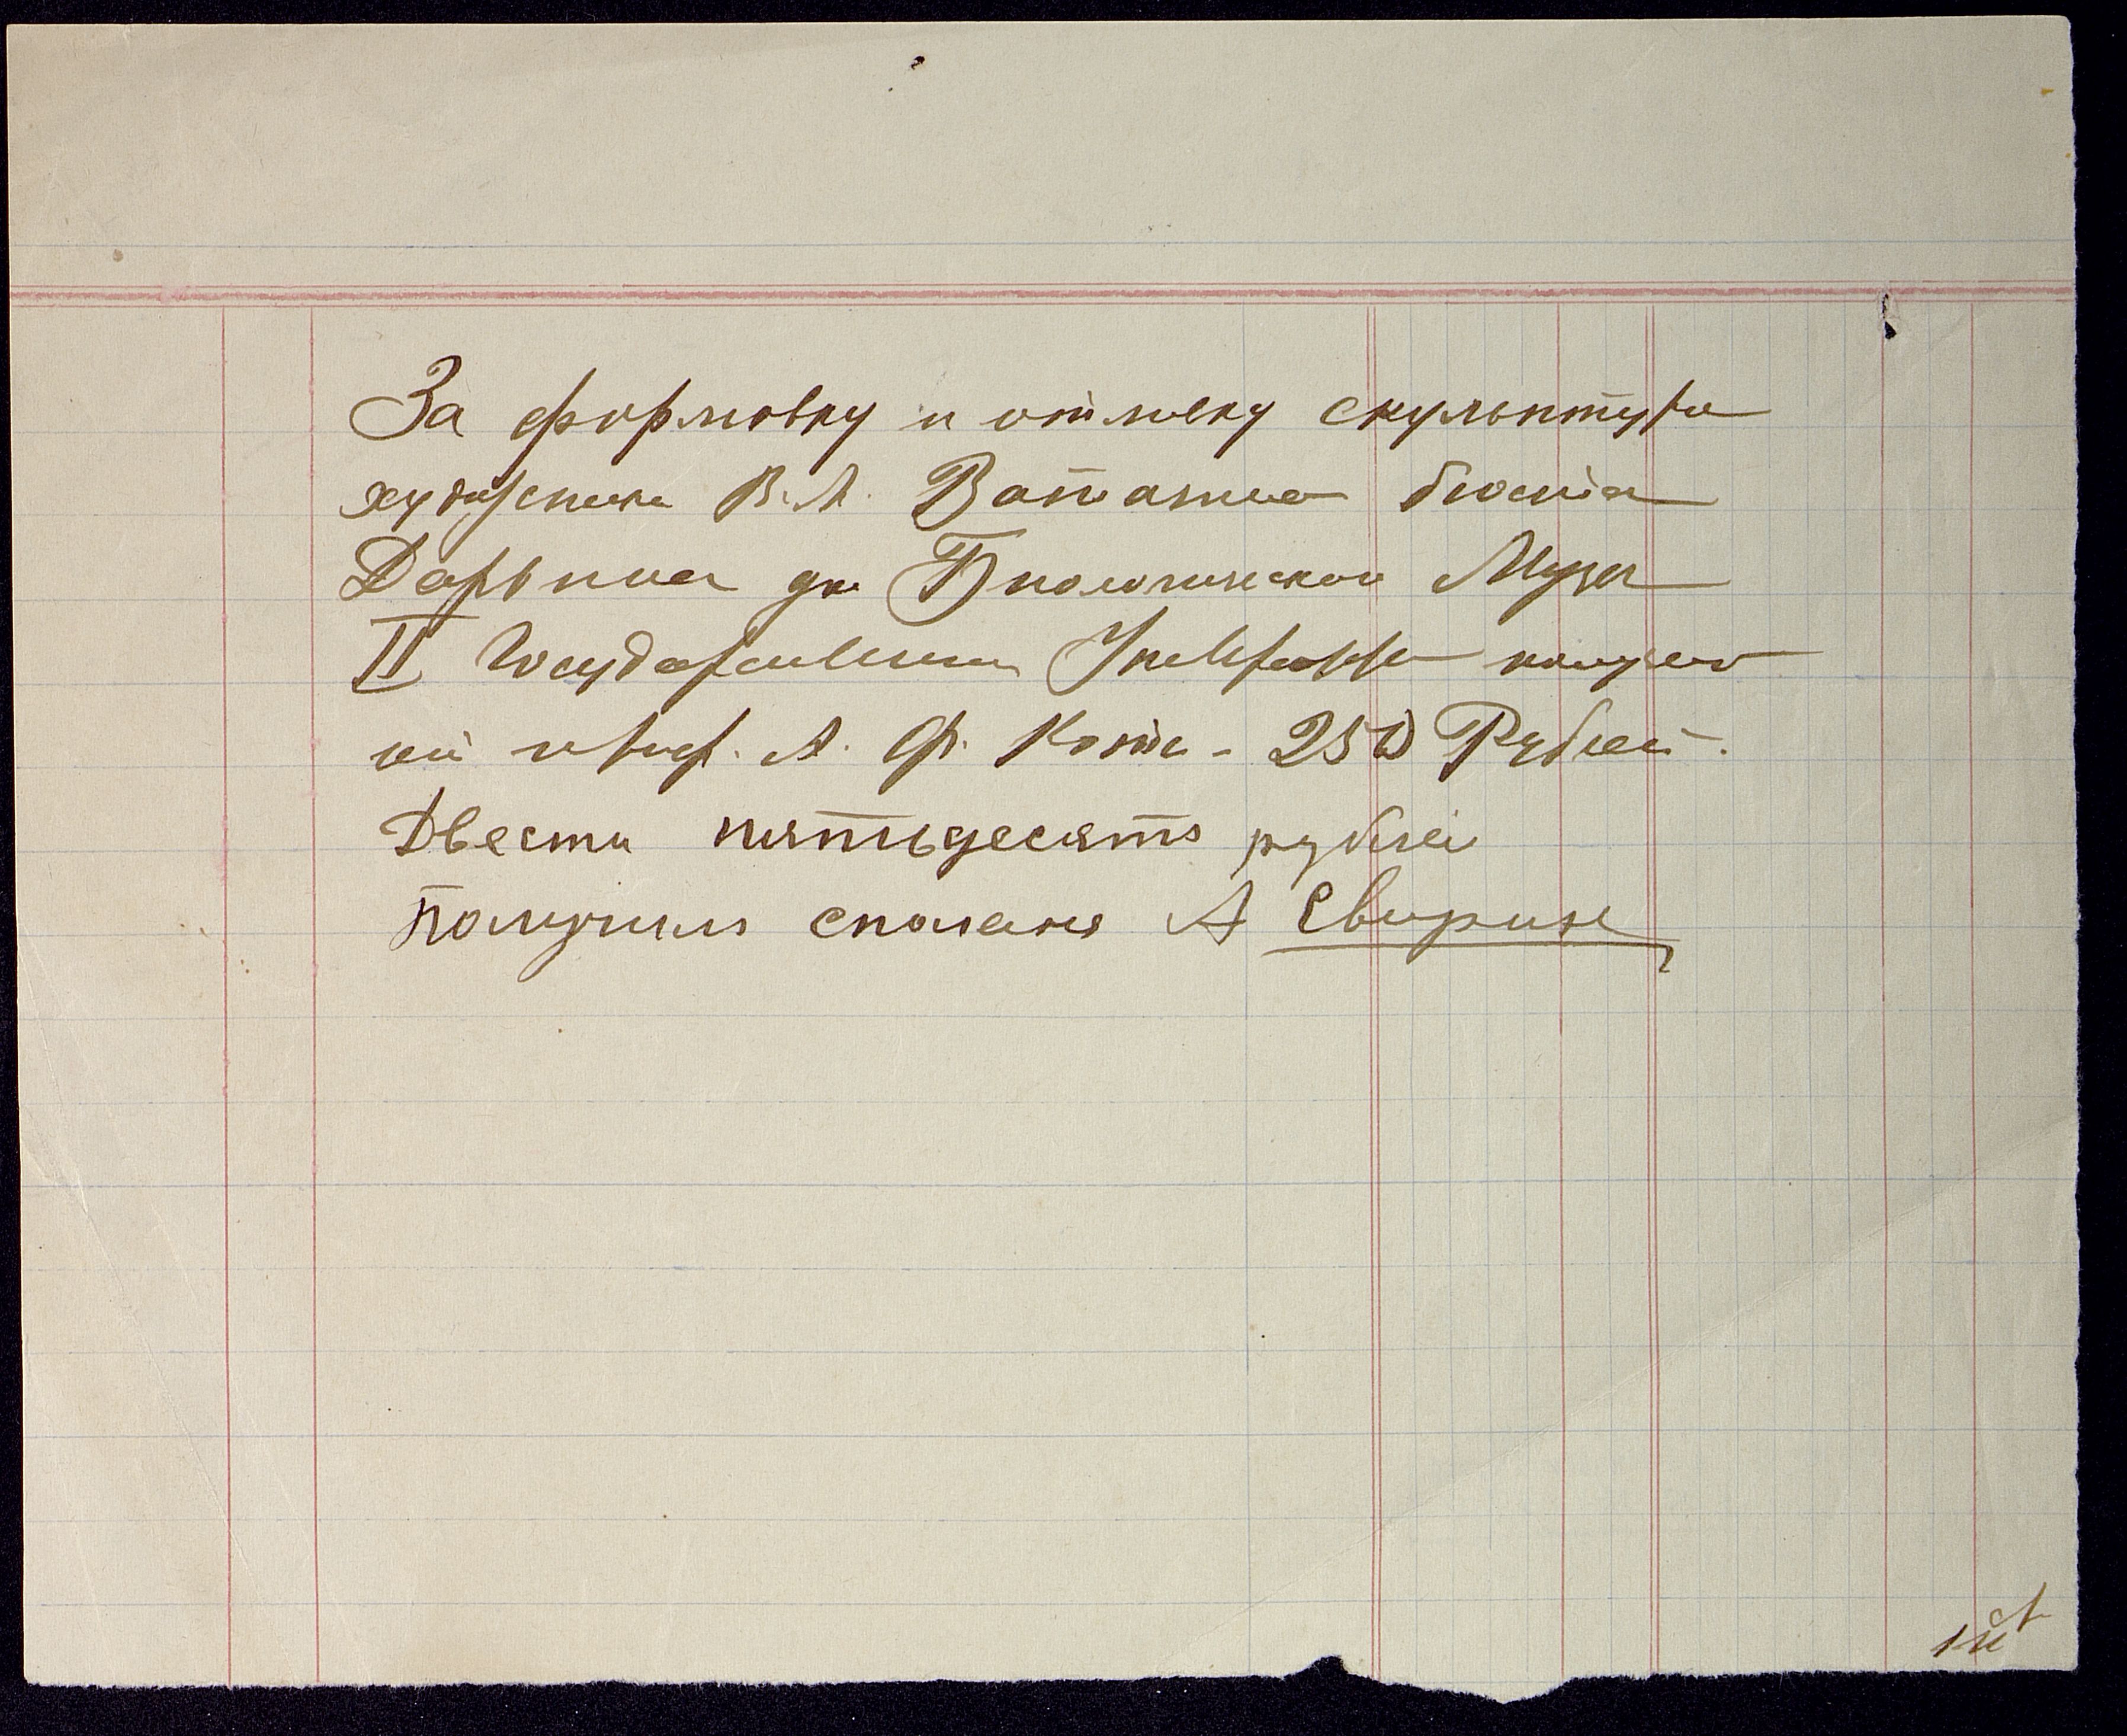 За формовку и отливку скульптуры
художника В.А. Ватагина бюста
Дарвина для Биологическаго Музея
II Государственнаго Университета получен
ой проф. А. Ф. Котс - 250 Рублей.
Двести пятьдесятъ рублей
Получилъ сполана А Свирин